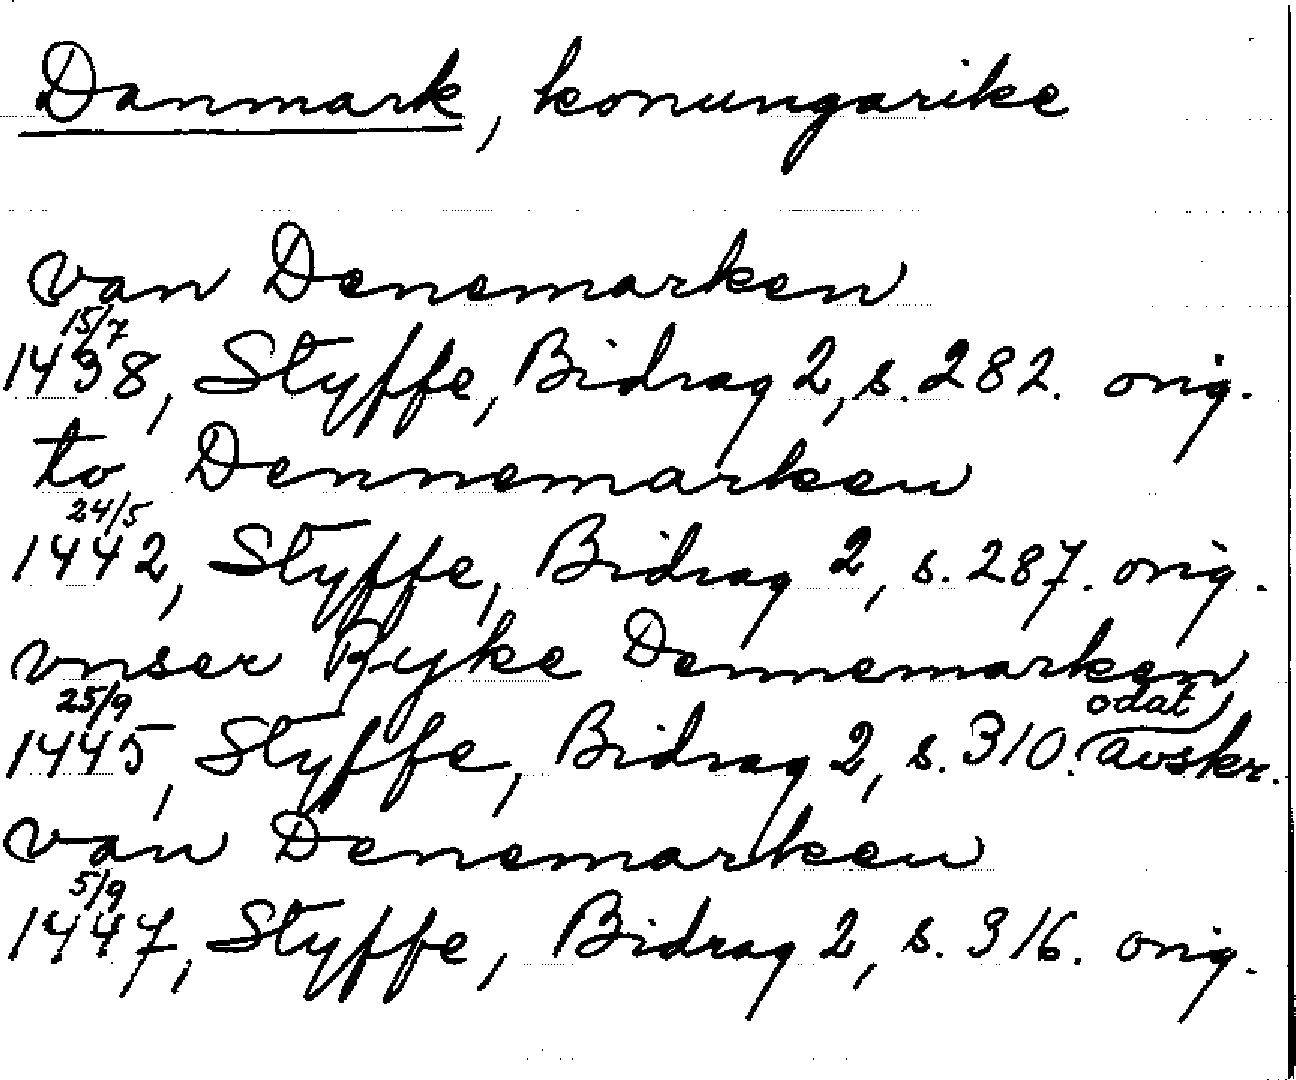 Danmark, konungarike
van Denemarken
15/7
1438, Styffe, Bidrag 2, s. 282. orig.
to Dennemarken
24/5
1442, Styffe, Bidrag 2, s. 287. orig.
vnser Ryke Dennemarken
25/9 odat
1445, Styffe, Bidrag 2, s. 310. avskr.
van Denemarken
5/9
1447, Styffe, Bidrag 2, s. 316. orig.